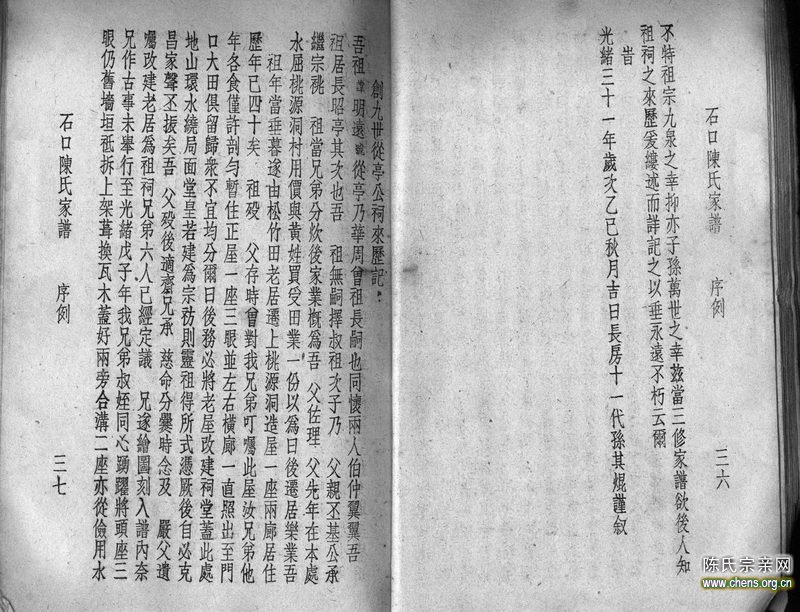 石口陳氏家譜　序例　三六
不特祖宗九泉之幸抑亦子孫萬世之幸兹當三修家譜欲後人知
祖祠之來歷爰縷述而詳記之以垂永遠不朽云爾
旹
光緒三十一年歲次乙巳秋月吉日長房十一代孫其焜謹叙
創九世從亭公祠來歷記
吾祖諱明遠號從亭乃華周曾祖長嗣也同懷兩人伯仲翼翼吾
祖居長昭亭其次也吾　祖無嗣擇叔祖次子乃　父親丕基公承
繼宗祧　祖當兄弟分炊後家業概爲吾　父佐理　父先年在本處
水屈桃源洞村用價與黄姓買受田業一份以爲日後遷居樂業吾
祖年當垂暮遂由松竹田老居遷上桃源洞造屋一座兩廊居住
歷年已四十矣　祖殁　父存時曾對我兄弟叮囑此屋汝兄弟他
年各食僅許剖勻暫住正屋一座三眼並左右橫廊一直照出至門
口大田俱留歸衆不宜均分爾日後務必將老屋改建祠堂蓋此處
地山環水繞局面堂皇若建爲宗祊則靈祖得所式憑厥後自必克
昌家聲丕振矣吾　父殁後適齋兄承　慈命分爨時念及　嚴父遺
囑改建老居爲祖祠兄弟六人已經定議　兄遂繪圖刻入譜內奈
兄作古事未舉行至光緒戊子年我兄弟叔姪同心踴躍將頭座三
眼仍舊墻垣祗拆上架葺換瓦木蓋好兩旁合溝二座亦從儉用水
石口陳氏家譜　序例　三七
陈氏宗亲网
www.chens.org.cn